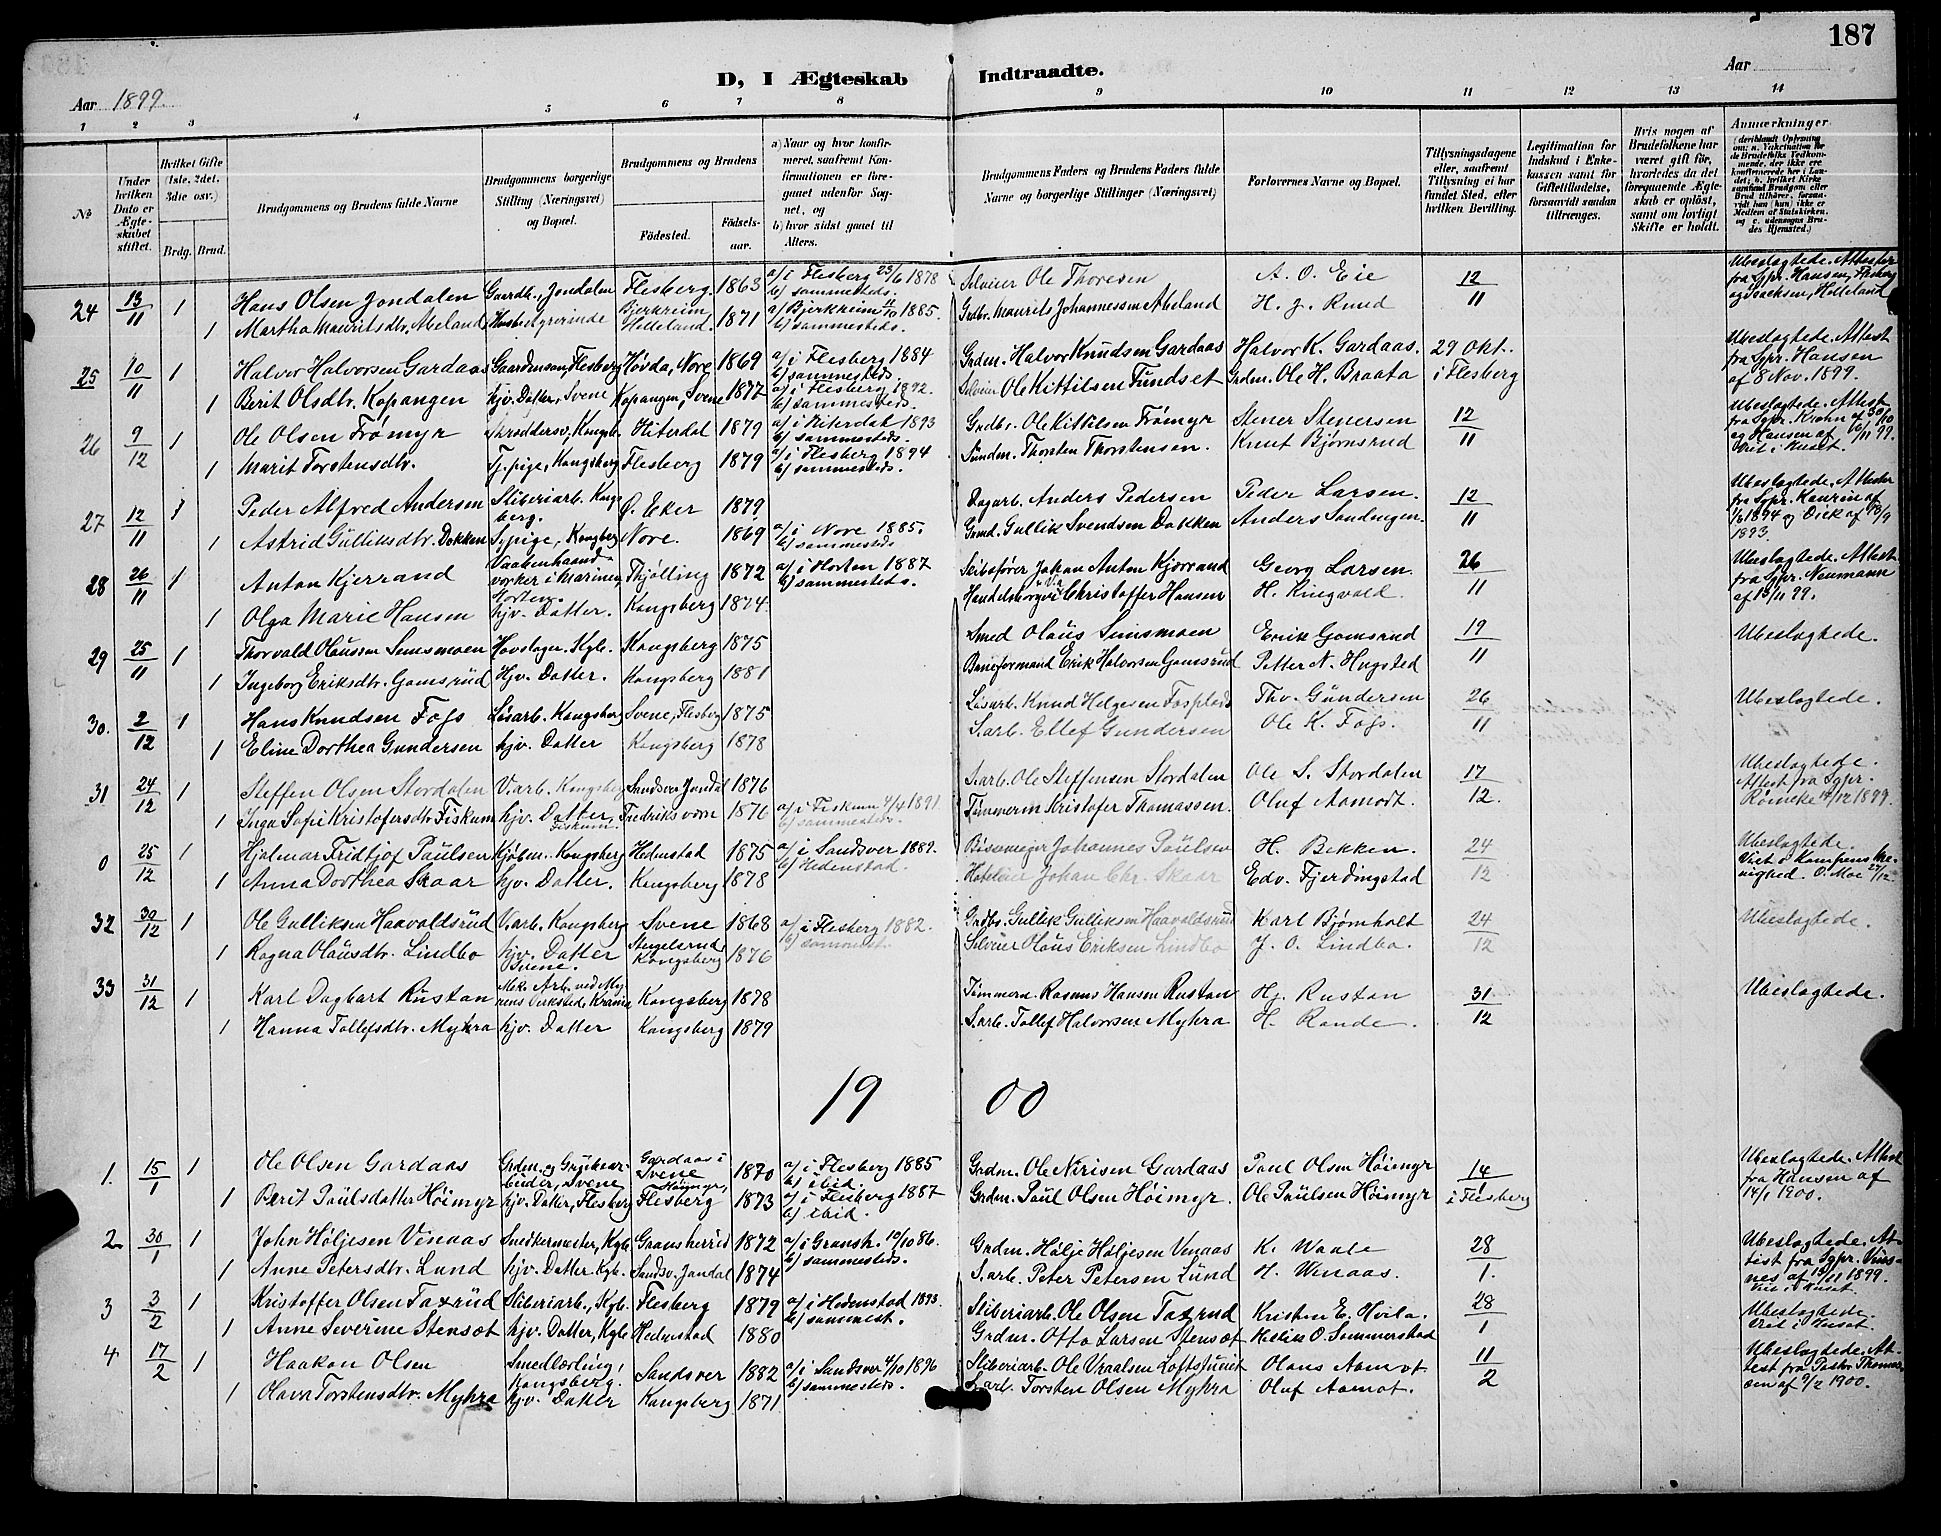 187
D, I Ægteskab Indtraadte.
Aar 1899.
Aar
1 2 3 4 5 6 7 8 9 10 11 12 13 14
No
Under hvilken Dato er Ægteskabet stiftet.
Hvilket Gifte (1ste, 2det, 3die osv.)
Brdg. Brud.
Brudgommens og Brudens fulde Navne
Brudgommens borgerlige Stilling (Næringsvei) og Bopæl.
Brudgommens og Brudens
Fødested.
Fødselsaar.
a) Naar og hvor konfirmeret, saafremt Konfirmationen er foregaaet udenfor Sognet, og
b) hvor sidst gaaet til Alters.
Brudgommens Faders og Brudens Faders fulde Navne og borgerlige Stillinger (Næringsvei)
Forlovernes Navne og Bopæl.
Tillysningsdagene eller, saafremt Tillysning ei har fundet Sted, efter hvilken Bevilling.
Legitimation for Indskud i Enkekassen samt for Giftetilladelse, forsaavidt saadan tiltrænges.
Hvis nogen af Brudefolkene har været gift før, hvorledes da det foregaaende Ægteskab er opløst, samt om lovligt Skifte er holdt.
Anmærkninger
24 13/11 1 Hans Olsen Jondalen Gaardb., Jondalen Flesberg. 1863 a/ i Flesberg 23/6 1878 b/ sammesteds. Sølvier Ole Thoresen A. O. Eie 12/11 Ubeslagtede. Attester fra Sgpr. Hansen, Flesberg og Isachsen, Helleland
1 Martha Mauritsdtr. Abeland Husbestyrerinde Bjerkreim, Helleland. 1871 a/ Bjerkreim 11/10 1885. b/ sammesteds. Grdbr. Maurits Johannessen Abeland H. J. Ruud
25 10/11 1 Halvor Halvorsen Gardaas Gaardmansøn, Flesberg Høvda, Nore 1869 a/ i Flesberg 1884 b/ sammesteds. Grdm. Halvor Knudsen Gardaas Halvor K. Gardaas. 29 Okt. i Flesberg Ubeslagtede. Attest fra Sgpr. Hansen af 8 Nov. 1899.
1 Berit Olsdtr. Kopangen hjv. Datter, Svene Kopangen, Svene 1877 a/ i Flesberg 1892. b/ sammesteds. Sølvier Ole Kittilsen Fundset Grdm. Ole H. Braata
26 9/12 1 Ole Olsen Frömyr Skræddersv., Kongsb. Hiterdal 1879 a/ i Hiterdal 1893 b/ sammesteds. Grdbr. Ole Kittilsen Frömyr Stener Stenersen 12/11 Ubeslagtede. Attest fra Sgpr. Krohn af 30/10 og Hansen af 10/11 99. Viet i Huset.
1 Marit Torstensdtr. Tj. pige, Kongsberg Flesberg 1879 a/ i Flesberg 1894 b/ sammesteds. Thorsten Thorstensen. Knut Bjørnsrud
27 12/11 1 Peder Alfred Andersen Sliberiarb. Kongsberg. Ø. Eker 1879 Dagarb. Anders Pedersen Peder Larsen. 12/11 Ubeslagtede. Attester fra Sgpr. Kaurin af 1/6 1894 og Dick af 13/9 1893.
1 Astrid Gulliksdtr. Dokken Sypige, Kongsberg Nore. 1869 a/ i Nore 1885. b/ sammesteds Grmd. Gullik Svendsen Dokken Anders Sandungen.
28 26/11 1 Anton Kjerrand Vaabenhaandverker i Marinen, Horten. Thjølling 1872 a/ i Horten 1887 b/ sammesteds. Skibsfører Johan Anton Kjerrand Georg Larsen. 26/11 Ubeslagtede. Attest fra Sgpr. Neumann af 15/11 99.
1 Olga Marie Hansen hjv. Datter. Kongsberg 1874. Christoffer Hansen H. Ringvold.
29 25/11 1 Thorvald Olaussen Simsmoen Hovslager. Kgb. Kongsberg 1875 Smed Olaus Simsmoen Erik Gomsrud 19/11 Ubeslagtede.
1 Ingeborg Eriksdtr. Gomsrud Hjv. Datter. Kongsberg 1881 Baneformand Erik Halvorsen Gomsrud Petter N. Hugsted
30. 2/12 1 Hans Knudsen Fofs Løsarb. Kongsberg Svene, Flesberg 1875 Løsarb. Knud Helgesen Thv. Gundersen 26/11 Ubeslagtede.
1 Eline Dorthea Gundersen hjv. Datter Kongsberg 1878 S.arb. Ellef Gundersen Ole K. Fofs.
31 24/12 1 Steffen Olsen Stordalen V.arb. Kongsberg Sandsver Jondal 1876 S.arb. Ole Steffensen Stordalen Ole S. Stordalen 17/12. Ubeslagtede. Attest fra Sgpr. Röineke 14/12 1899.
1 Inga Sofie Kristofersdtr Fiskum hjv. Datter, Fiskum. Fredriksværn 1876 a/ i Fiskum 4/4 1891 b/ sammesteds. Tømmerm. Kristofer Thomassen. Oluf Aamodt.
0 25/12 1 Hjalmar Fridtjof Paulsen Kjøbm. Kongsberg Hedenstad 1875 a/ i Sandsver 1889. b/ Hedenstad. Johannes Paulsen H. Bekken. 24/12 Ubeslagtede. Viet i Kampens Menighed. O. Moe 27/12
1 Anna Dorthea Skaar hjv. Datter. Kongsberg 1878 Johan Chr. Skaar Edv. Fjerdingstad
32 30/12 1 Ole Gulliksen Haavaldsrud V.arb. Kongsberg Svene 1868 a/ i Flesberg 1882. b/ sammest. Grdbr. Gullik Gulliksen Haavaldsrud Karl Bjørnholt 24/12 Ubeslagtede.
1 Ragna Olausdtr. Lindbo hjv. Datter Svene. Stengelsrud Kongsberg 1876 Sølvier Olaus Eriksen Lindbo J. O. Lindbo.
33 31/12 1 Karl Dagbart Rustan Mek. Arb. ved Myrens Verksted, Krania Kongsberg 1878 Tømmerm. Rasmus Hansen Rustan Hj. Rustan 31/12 Ubeslagtede.
1 Hanna Tollefsdtr. Myhra hjv. Datter Kongsberg 1879 S.arb. Tollef Halvorsen Myhra H. Rande.
19 00
1. 15/1 1 Ole Olsen Gardaas Grdm. og Gruvearbeider, Svene Gardaas i Svene 1870 a/ i Flesberg 1885 b/ ibid. Grdm. Ole Nirisen Gardaas Paul Olsen Höimyr 14/1 i Flesberg Ubeslagtede. Attest fra Hansen af 14/1 1900.
1 Berit Paulsdatter Höimyr hjv. Datter, Flesberg Höimyr, Flesberg 1873 a/ i Flesberg 1887 b/ ibid. Grdm. Paul Olsen Höimyr. Ole Paulsen Höimyr
2 30/1 1 John Höljesen Vinaas Snedkermester, Kgb. Gransherred 1872 a/ i Gransh. 10/10 86. b/ sammesteds. Grdm. Hölje Höljesen Venaas K. Waale 28/1. Ubeslagtede. Attest fra Sgpr. Vinsnes af 15/11 1899. Viet i Huset.
1 Anne Petersdtr. Lund hjv. Datter, Kgb. Sandsv. Jondal 1874 S.arb. Peter Petersen Lund H. Winaas.
3 3/2 1 Kristoffer Olsen Taxrud Sliberiarb., Kgb. Flesberg 1879 a/ i Hedenstad 1893. b/ sammest. Sliberiarb. Ole Olsen Taxrud Kristen E. Hvila. 28/1 Ubeslagtede. Viet i Huset.
1 Anne Severine Stensæt hjv. Datter, Kgb. Hedenstad 1880 Grdm. Otto Larsen Stensæt Helius O. Sommerstad
4 17/2 1 Haakon Olsen Smedlærling, Kongsberg. Sandsver 1882 a/ i Sandsver 4/10 1896 b/ sammesteds. Sliberiarb. Ole Vraalsen Loftstuen Olaus Aamot 11/2 Ubeslagtede. Attest fra Pastor Thomassen af 9/2 1900.
1 Olava Torstensdtr. Myhra hjv. Datter Kongsberg 1871 S.arb. Torsten Olsen Myhra Oluf Aamot.